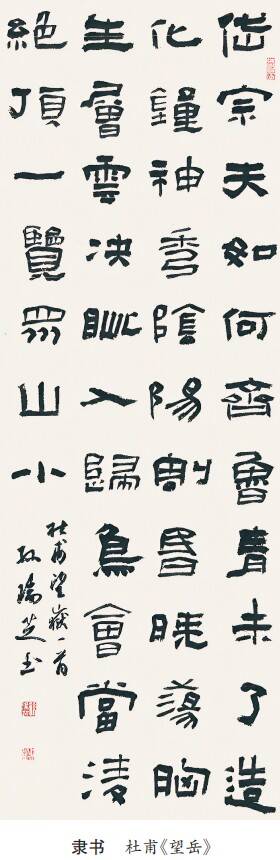 岱宗夫如何齊魯青未了造
化鐘神秀陰陽割昏曉蕩胸
生層雲决眦入歸鳥會當淩
絕頂一覽眾山小
杜甫望嶽一首
隶书 杜甫《望岳》